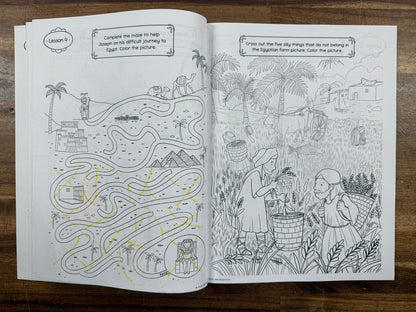 Lesson 9
Complete the maze to help
Joseph on his difficult journey to
Egypt. Color the picture.
Cross out the five silly things that do not belong in
the Egyptian farm picture. Color the picture.